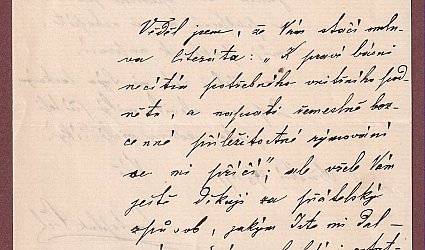 Věděl jsem, že Vám stačí mlu-
va literáta: „K pravé básni
necítím potřebného vnitřního pod-
nětu, a napsati řemeslné bez-
cenné příležitostné rýmování
se mi příčí"; ale vřele Vám
ještě děkuji za přátelský
způsob, jakým Jste mi dal